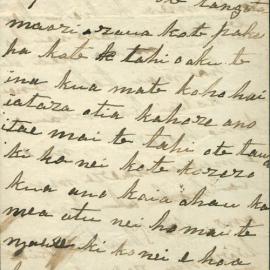 te tangata
maori. raua kote pake
ha kote tahi oaku te
ina kua mate koho hai
iatara otia kahore ano
itae mai te tahi ote taua
ki ko nei kote korero
kua ano kaia ahau ka
mea atu nei ho mai te
ki ko nei e hoa